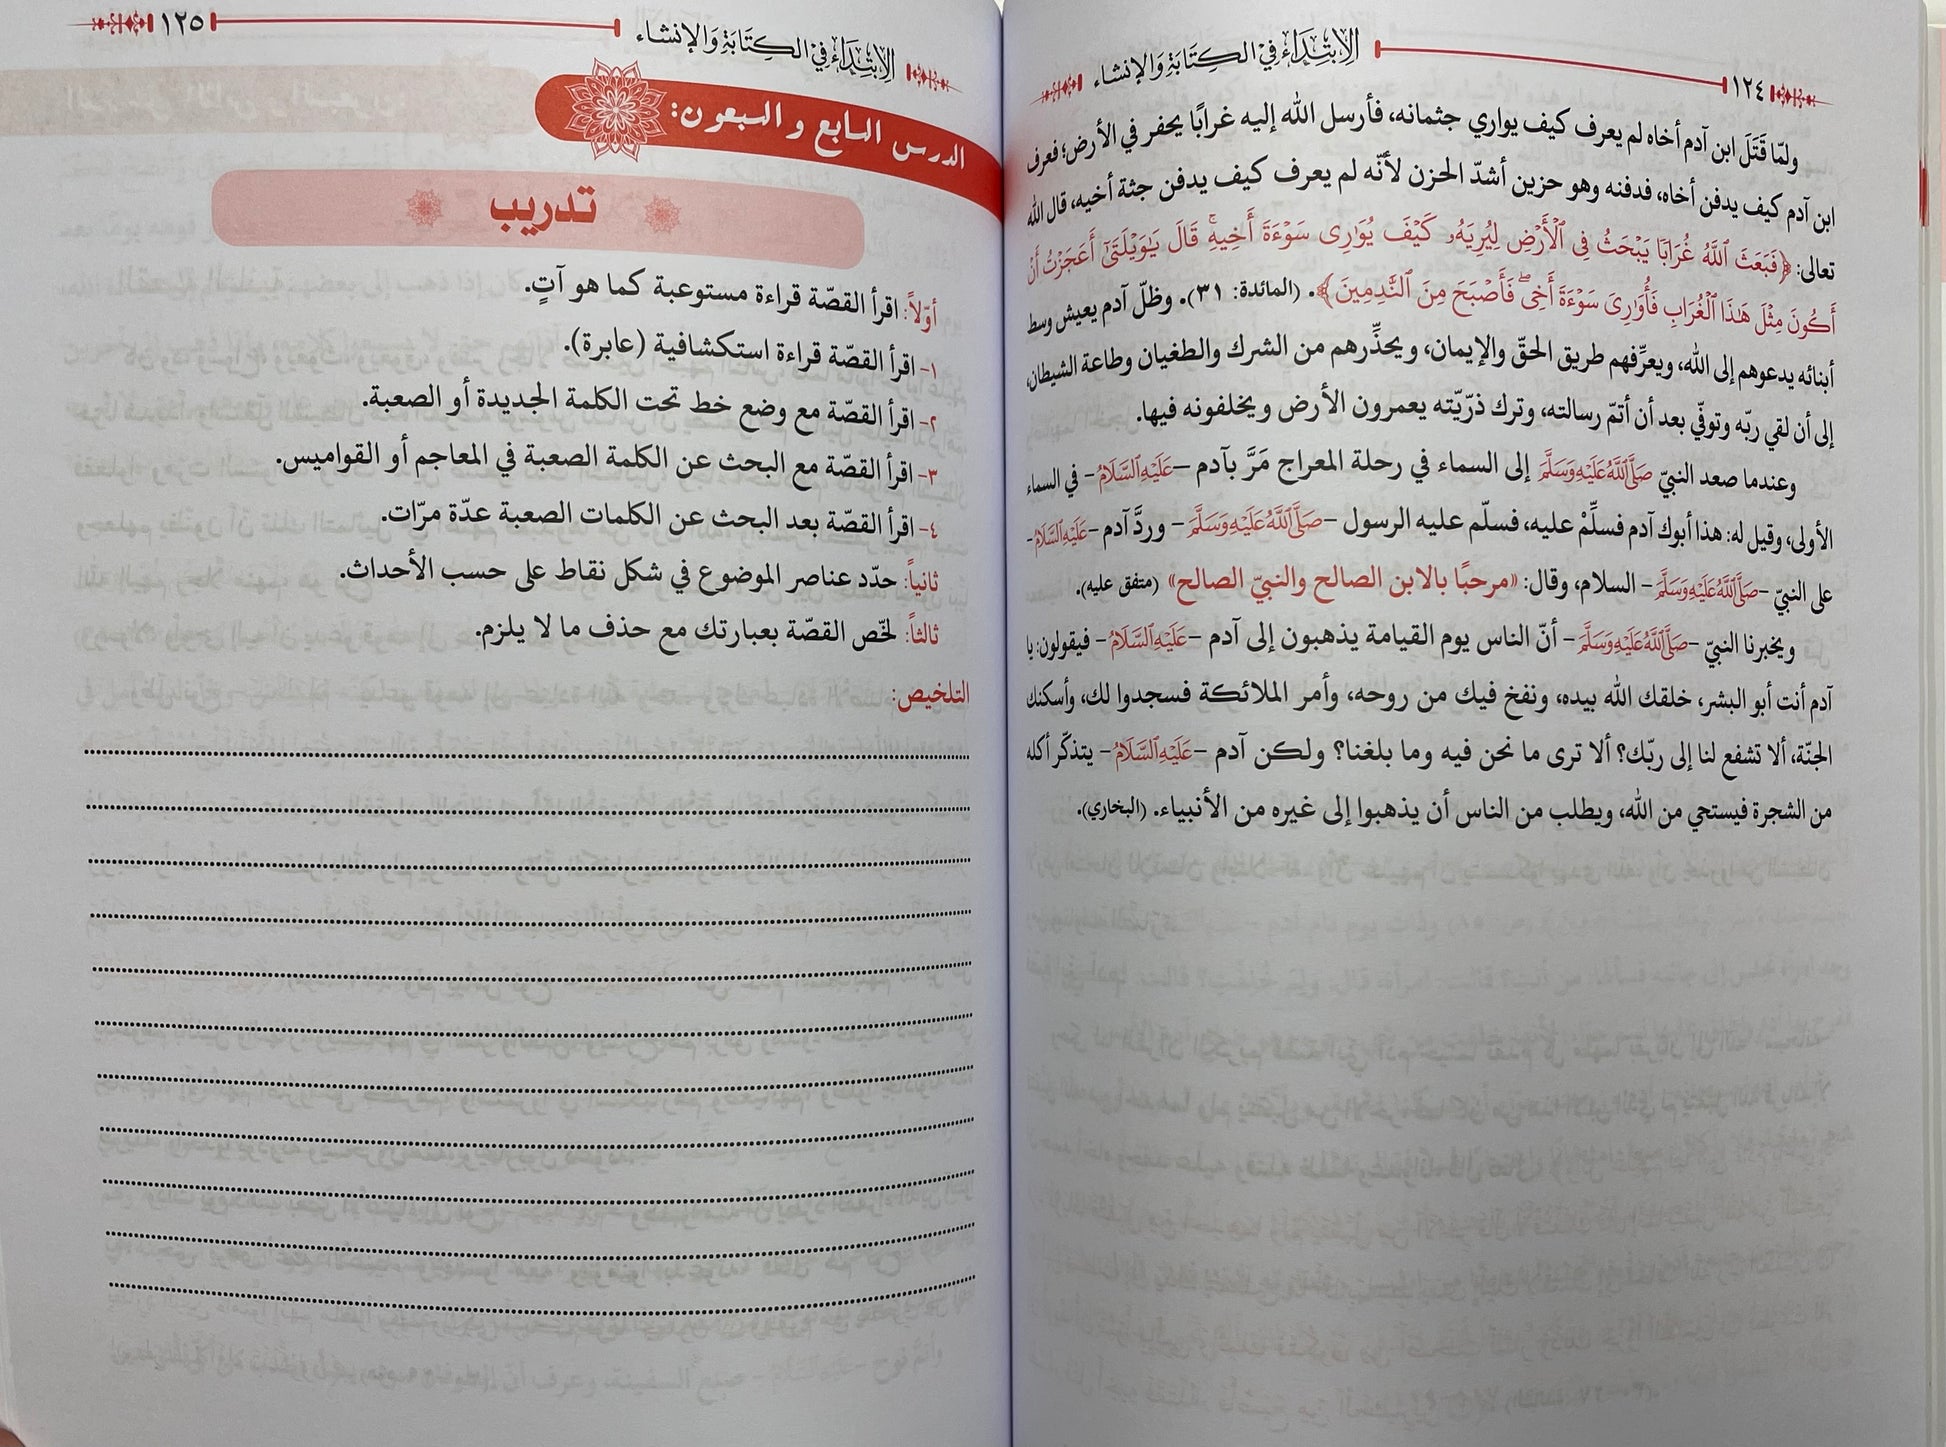 ١٢٤
الابتداء في الكتابة والإنشاء
ولمّا قَتَلَ ابن آدم أخاه لم يعرف كيف يواري جثمانه، فأرسل الله إليه غرابًا يحفر في الأرض؛ فعرف
ابن آدم كيف يدفن أخاه، فدفنه وهو حزين أشدّ الحزن لأنّه لم يعرف كيف يدفن جثة أخيه، قال الله
تعالى: ﴿فَبَعَثَ ٱللَّهُ غُرَابٗا يَبۡحَثُ فِي ٱلۡأَرۡضِ لِيُرِيَهُۥ كَيۡفَ يُوَٰرِي سَوۡءَةَ أَخِيهِۚ قَالَ يَٰوَيۡلَتَىٰٓ أَعَجَزۡتُ أَنۡ
أَكُونَ مِثۡلَ هَٰذَا ٱلۡغُرَابِ فَأُوَٰرِيَ سَوۡءَةَ أَخِيۖ فَأَصۡبَحَ مِنَ ٱلنَّٰدِمِينَ﴾. (المائدة: ٣١). وظلّ آدم يعيش وسط
أبنائه يدعوهم إلى الله، ويعرِّفهم طريق الحقّ والإيمان، ويحذِّرهم من الشرك والطغيان وطاعة الشيطان،
إلى أن لقي ربّه وتوفّي بعد أن أتمّ رسالته، وترك ذرّيّته يعمرون الأرض ويخلفونه فيها.
وعندما صعد النبيّ صَلَّى ٱللَّهُ عَلَيْهِ وَسَلَّمَ إلى السماء في رحلة المعراج مَرَّ بآدم –عَلَيْهِ ٱلسَّلَامُ– في السماء
الأولى، وقيل له: هذا أبوك آدم فسلِّمْ عليه، فسلّم عليه الرسول –صَلَّى ٱللَّهُ عَلَيْهِ وَسَلَّمَ– وردَّ آدم –عَلَيْهِ ٱلسَّلَامُ–
على النبيّ –صَلَّى ٱللَّهُ عَلَيْهِ وَسَلَّمَ– السلام، وقال: «مرحبًا بالابن الصالح والنبيّ الصالح» (متفق عليه).
ويخبرنا النبيّ –صَلَّى ٱللَّهُ عَلَيْهِ وَسَلَّمَ– أنّ الناس يوم القيامة يذهبون إلى آدم –عَلَيْهِ ٱلسَّلَامُ– فيقولون: يا
آدم أنت أبو البشر، خلقك الله بيده، ونفخ فيك من روحه، وأمر الملائكة فسجدوا لك، وأسكنك
الجنّة، ألا تشفع لنا إلى ربّك؟ ألا ترى ما نحن فيه وما بلغنا؟ ولكن آدم –عَلَيْهِ ٱلسَّلَامُ– يتذكّر أكله
من الشجرة فيستحي من الله، ويطلب من الناس أن يذهبوا إلى غيره من الأنبياء. (البخاري).
الابتداء في الكتابة والإنشاء
١٢٥
الدرس السابع و السبعون:
تدريب
أوّلاً: اقرأ القصّة قراءة مستوعبة كما هو آتٍ.
١- اقرأ القصّة قراءة استكشافية (عابرة).
٢- اقرأ القصّة مع وضع خط تحت الكلمة الجديدة أو الصعبة.
٣- اقرأ القصّة مع البحث عن الكلمة الصعبة في المعاجم أو القواميس.
٤- اقرأ القصّة بعد البحث عن الكلمات الصعبة عدّة مرّات.
ثانياً: حدّد عناصر الموضوع في شكل نقاط على حسب الأحداث.
ثالثاً: لخّص القصّة بعبارتك مع حذف ما لا يلزم.
التلخيص: